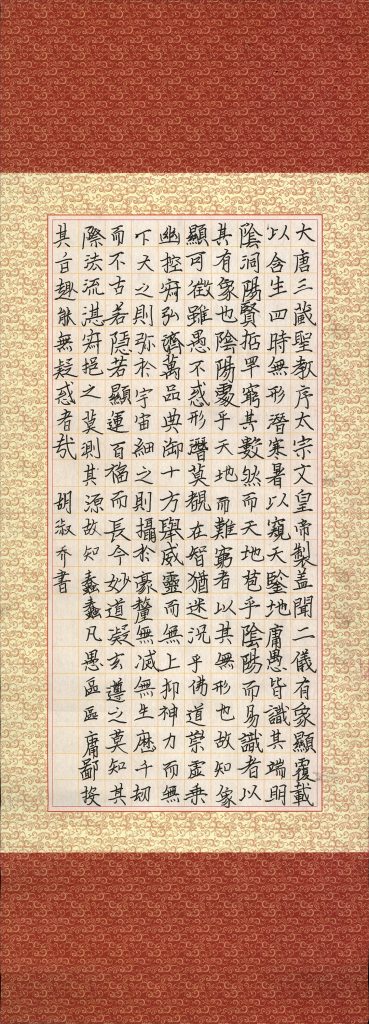 大唐三藏聖教序太宗文皇帝製盖聞二儀有象顯覆載
以含生四時無形潛寒暑以窺天鑒地庸愚皆識其端明
陰洞陽賢悊罕窮其數然而天地苞乎陰陽而易識者以
其有象也陰陽處乎天地而難窮者以其無形也故知象
顯可徵雖愚不惑形潛莫覩在智猶迷況乎佛道崇虛乘
幽控寂弘濟萬品典御十方舉威靈而無上抑神力而無
下大之則弥於宇宙細之則攝於豪釐無滅無生歷千劫
而不古若隱若顯運百福而長今妙道凝玄遵之莫知其
際法流湛寂挹之莫測其源故知蠢蠢凡愚區區庸鄙投
其旨趣能無疑惑者哉 胡淑書